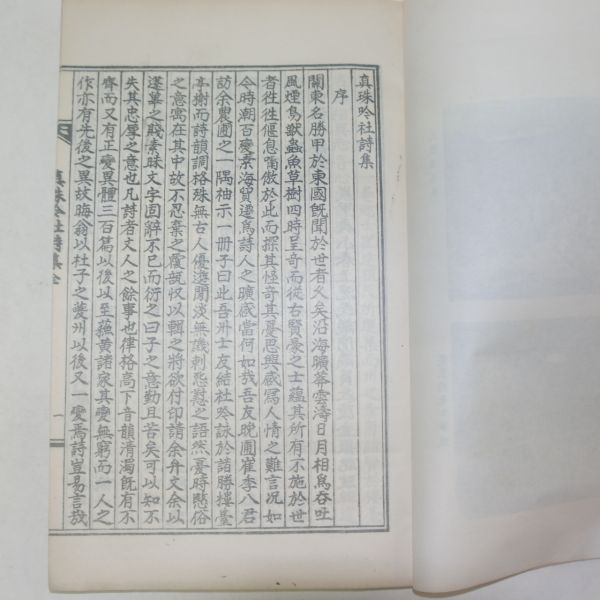 真珠吟社詩集
序
關東名勝甲於東國旣聞於世者久矣沿海曠莽雲濤日月相爲吞吐
風煙鳥獸蟲魚草樹四時呈奇而從古賢豪之士蘊其所有不施於世
者往往偃息嘯傲於此而探其怪奇其憂思興感寫人情之難言况如
今時潮百變桑海貿遷爲詩人之曠感當何如哉吾友晩圃崔李八君
訪余農圃之一隅袖示一册子曰此吾州士友結社吟詠於諸勝樓臺
亭榭而詩韻調格殊無古人優遊閒淡無譏刺悲懟之語然憂時愍俗
之意寓在其中故不忍棄之覆瓿收以瓢之將欲付印請余弁文余以
逢篳之賤素昧文字固辭不已而衍之曰子之意勤且苦矣可以知不
失其忠厚之意也凡詩者文人之餘事也律格高下音韻淸濁旣有不
齊而又有正變異體三百篇以後以至蘓黃諸家其變無窮而一人之
作亦有先後之異故晦翁以杜子之夔州以後又一變焉詩豈易言哉
真珠吟社詩集全
一